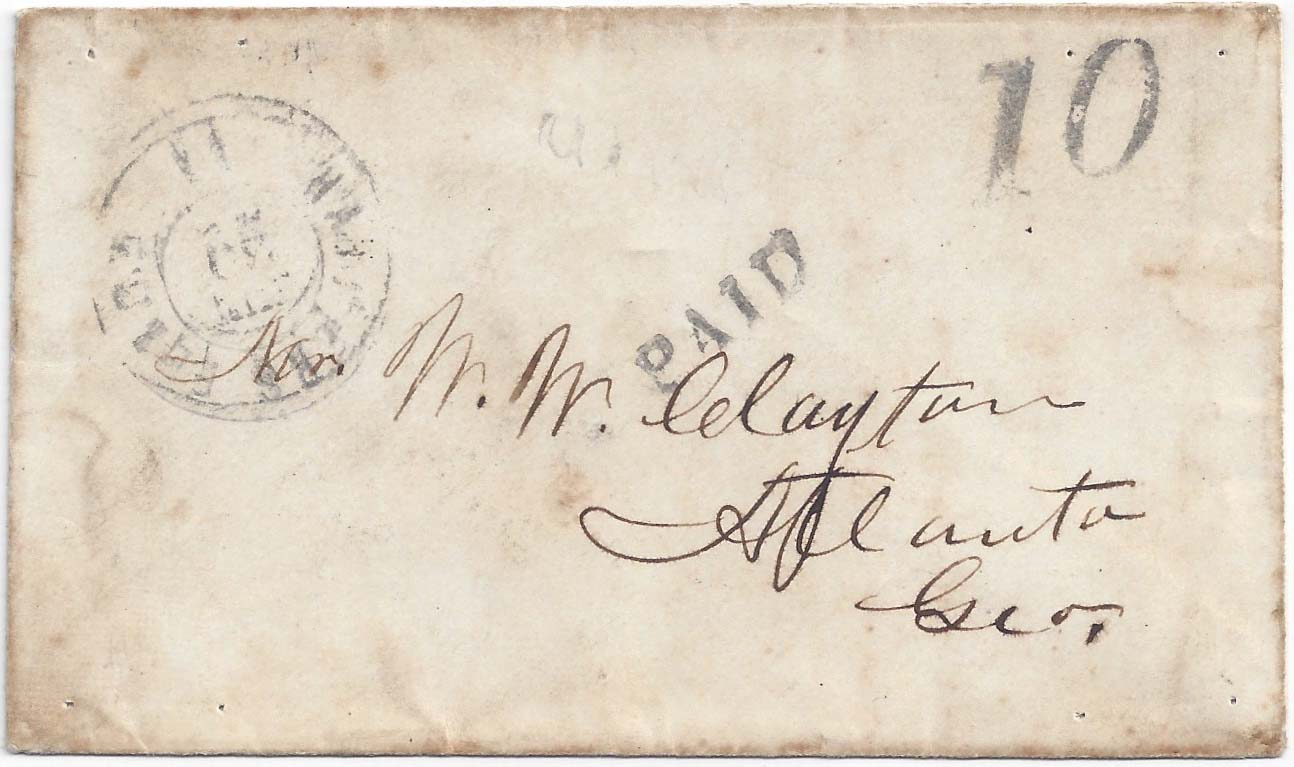 10
PAID
Hon. W. W. Clayton
Atlanta
Geo,